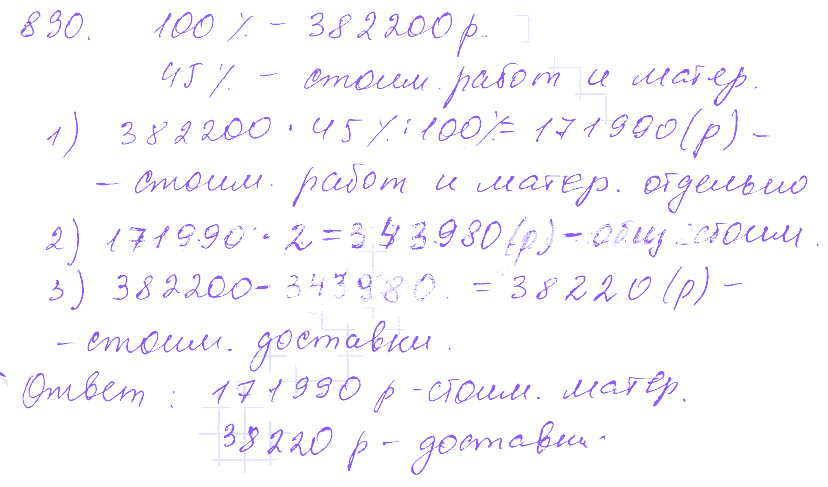 890. 100% - 382200 р.
45% - стоим. работ и матер.
1) 382200 · 45% : 100% = 171990 (р) -
- стоим. работ и матер. отдельно
2) 171990 · 2 = 343980 (р) - общ. стоим.
3) 382200 - 343980 = 38220 (р) -
- стоим. доставки.
Ответ: 171990 р - стоим. матер.
38220 р - доставки.